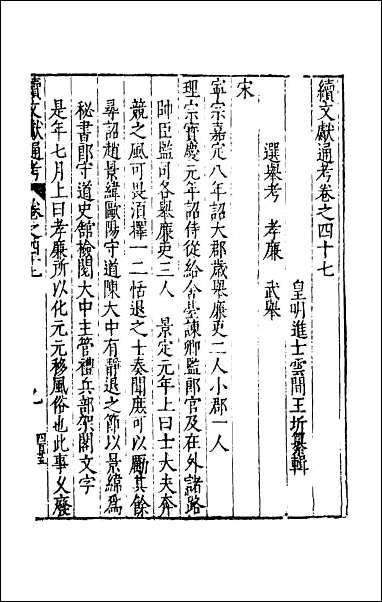 續文獻通考卷之四十七
皇明進士雲間王圻纂輯
選舉考　孝廉　武舉
宋
寧宗嘉定八年詔大郡歲舉廉吏二人小郡一人
理宗寶慶元年詔侍從給舍臺諫卿監郎官及在外諸路
帥臣監司各舉廉吏三人　景定元年上曰士大夫奔
競之風可畏須擇一二恬退之士奏聞庶可以勵其餘
尋詔趙景緯歐陽守道陳大中有靜退之節以景緯爲
秘書郎守道史館檢閱大中主管禮兵部架閣文字
是年七月上曰孝廉所以化元元移風俗也此事乆廢
續文獻通考　卷之四十七